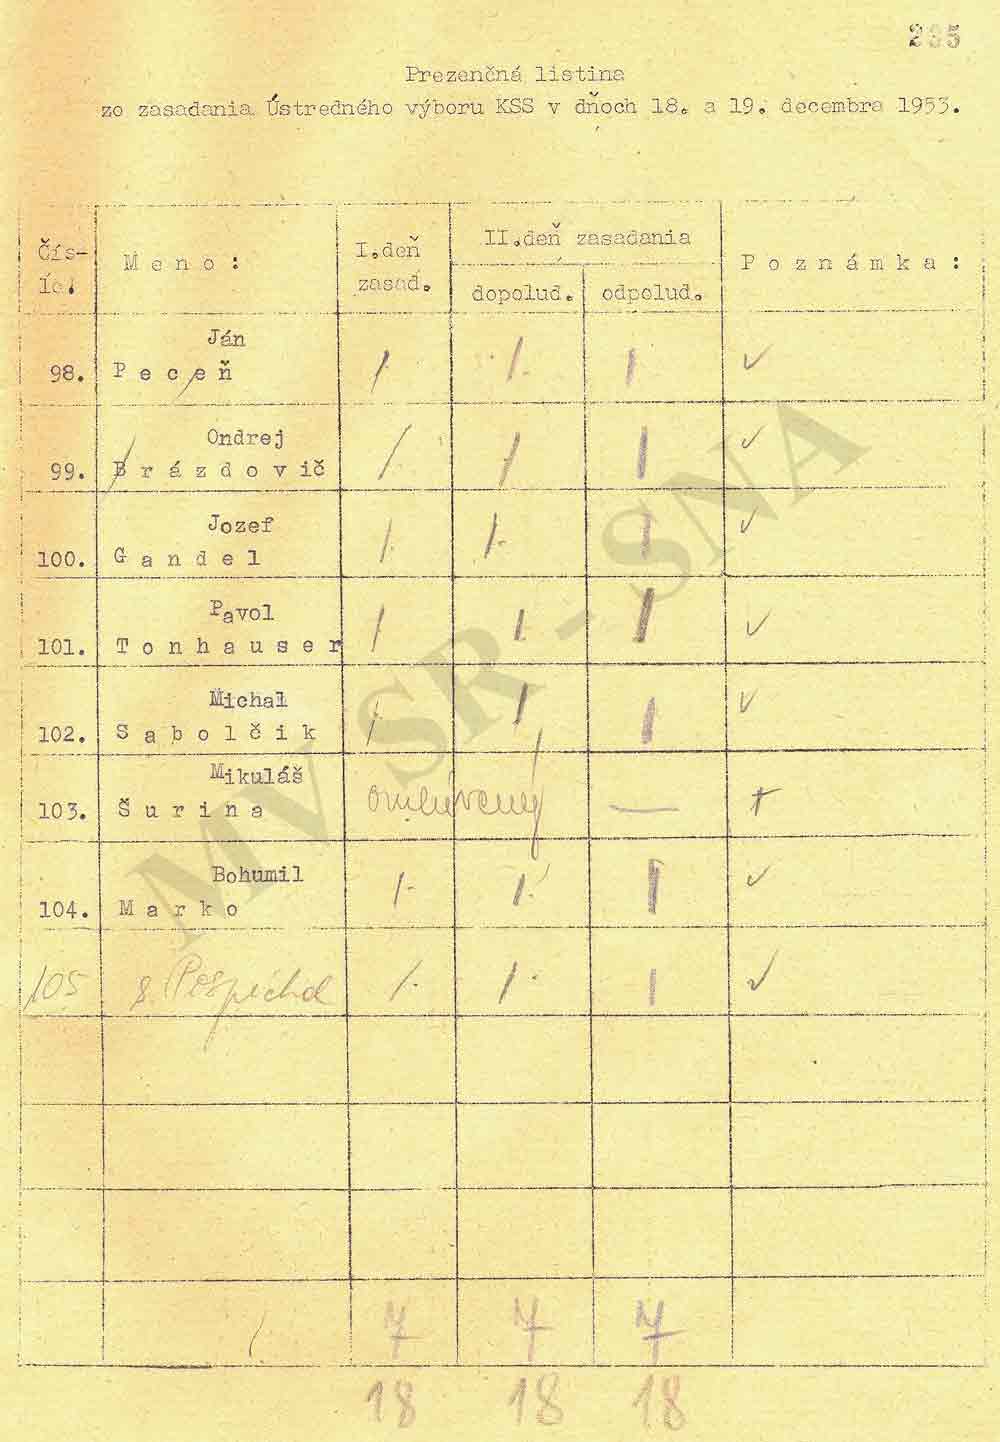 235
Prezenčná listina
zo zasadania Ústredného výboru KSS v dňoch 18. a 19. decembra 1953.
Čís-
lo:
Meno:
I.deň
zasad.
II.deň zasadania
dopolud.
odpolud.
Poznámka:
Ján
98. Peceň / / / ✓
Ondrej
99. Brázdovič / / / ✓
Jozef
100. Gandel / / / ✓
Pavol
101. Tonhauser / / / ✓
Michal
102. Sabolčik / / / ✓
Mikuláš
103. Šurina omluvený — +
Bohumil
104. Marko / / / ✓
105 s. Pospíchal / / / ✓
7 7 7
18 18 18
MV SR - SNA